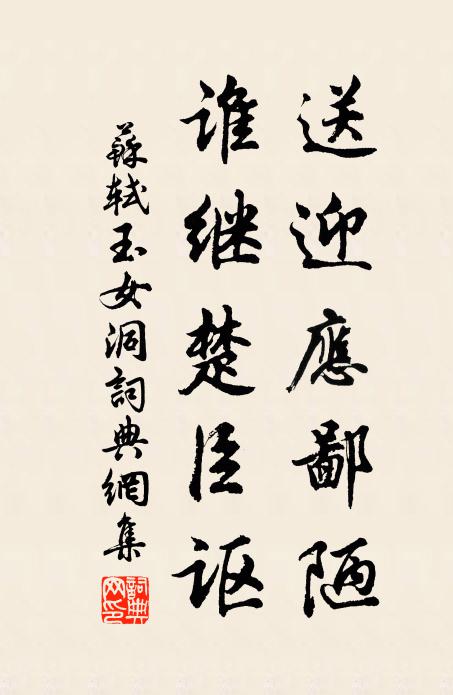 送迎應鄙陋
谁继楚臣讴
蘇軾玉女洞詞典網集
詞典網印